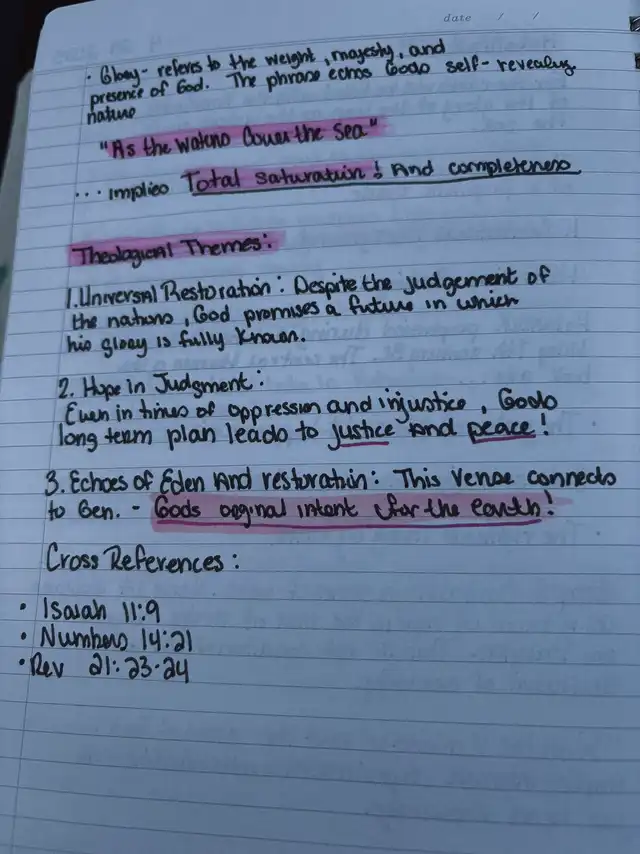 date / /
· Glory- refers to the weight, majesty, and
presence of God. The phrase echos Gods self-revealing
nature
"As the waters Cover the sea"
... implies Total saturation! And completeness
Theological Themes:
1. Universal Restoration: Despite the judgement of
the nations, God promises a future in which
his glory is fully known.
2. Hope in Judgment:
Even in times of oppression and injustice, Gods
long term plan leads to justice and peace!
3. Echoes of Eden And restoration: This Verse connects
to Gen. - Gods orginal intent for the earth!
Cross References:
• Isaiah 11:9
• Numbers 14:21
• Rev 21:23-24